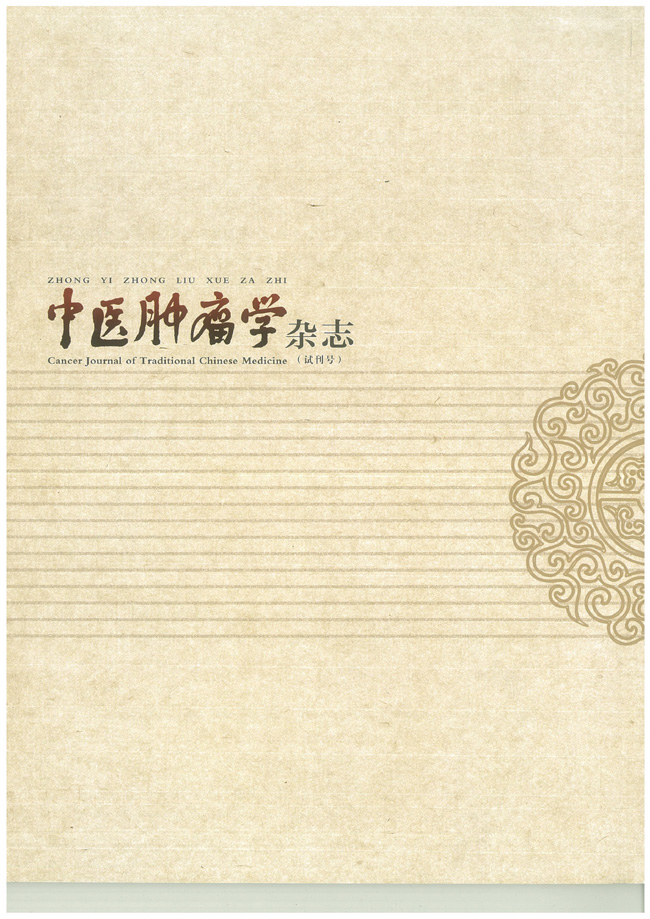 ZHONG YI ZHONG LIU XUE ZA ZHI
中医肿瘤学杂志
Cancer Journal of Traditional Chinese Medicine （试刊号）